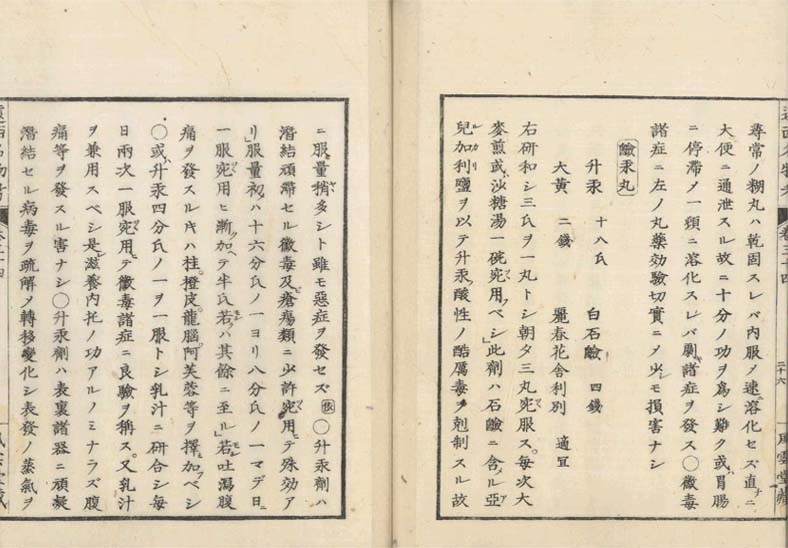 尋常ノ糊丸ハ乾固スレバ内服〆速ニ溶化セズ直ニ
大便ニ通泄スル故ニ十分ノ功ヲ爲シ難ク或ハ胃腸
ニ停滞〆一頻ニ溶化スレバ劇諸症ヲ發ス〇黴毒
諸症ニ左ノ丸藥効驗切實ニ〆少モ損害ナシ
鹼汞丸
升汞 十八氏 白石鹼 四錢
大黄 二錢 罌春花舎利別 適宜
右研和シ三氏ヲ一丸トシ朝夕三丸宛服ス。毎次大
麥煎或ハ沙糖湯一碗宛用ベシ」此劑ハ石鹼ニ含メル亞
兒加利鹽ヲ以テ升汞酸性ノ酷厲毒ヲ剋制スル故
卷三十四
二十六
風雲堂藏
ニ服量稍多シト雖モ惡症ヲ發セズ 〇升汞劑ハ
潜結頑滞セル黴毒及ビ瘡瘍類ニ少許宛用テ殊効ア
リ」服量初ハ十六分氏ノ一ヨリ八分氏ノ一マデ日ニ
一服宛用ヒ漸加テ半氏若クハ其餘ニ至ル」若吐瀉腹
痛ヲ發スルキハ桂。橙皮。龍腦。阿芙蓉等ヲ擇加ベシ
〇或ハ升汞四分氏ノ一ヲ一服トシ乳汁ニ研合シ毎
日兩次一服宛用テ黴毒諸症ニ良驗ヲ稱ス。又乳汁
ヲ兼用スベシ是レ滋養内托ノ功アルノミナラズ腹
痛等ヲ發スル害ナシ〇升汞劑ハ表裏諸器ニ頑凝
潜結セル病毒ヲ疏解〆轉移變化シ表發ノ蒸氣ヲ